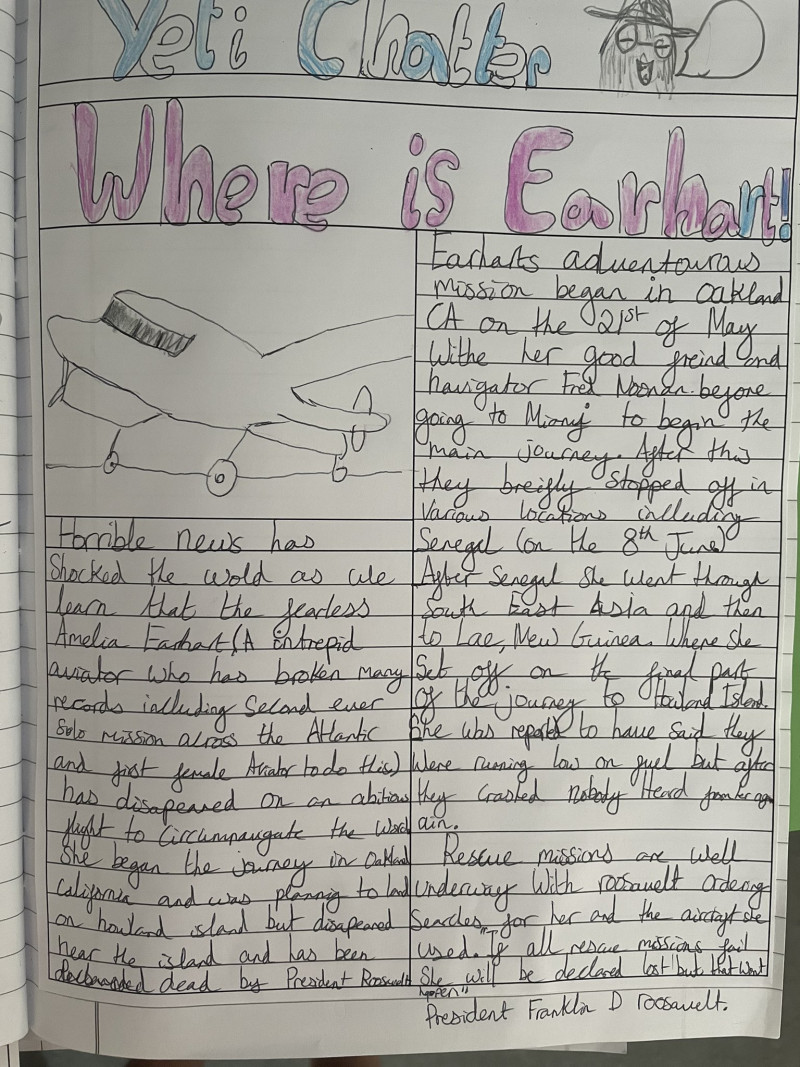 Yeti Chatter
Where is Earhart!
Horrible news has
Shocked the wold as we
learn that the fearless
Amelia Earhart (A intrepid
aviator who has broken many
records including Second ever
Solo mission across the Atlantic
and first female Aviator to do this)
has disapeared on an abitious
flight to Circumnavigate the World
She began the journey in Oakland
California and was plannig to land
on howland island but disapeared
near the island and has been
dead by President Roosevelt
Earharts adventourous
mission began in Oakland
CA on the 21st of May
Withe her good freind and
navigator Fred Noonan before
going to Miami to begin the
main journey. After this
they breifly stopped off in
Various locations including
Senegal (on the 8th June)
After Senegal She went through
South East Asia and then
to Lae, New Guinea. Where she
Set off on the final part
of the journey to Howland Island.
She was reported to have said they
Were running low on fuel but after
they Crashed Nobody Heard from her ag
ain.
Rescue missions are well
underway With roosavelt ordering
Searches for her and the aircraft she
used. "If all rescue missions fail
She will be declared lost but that wont
hapen"
President Franklin D roosavelt.